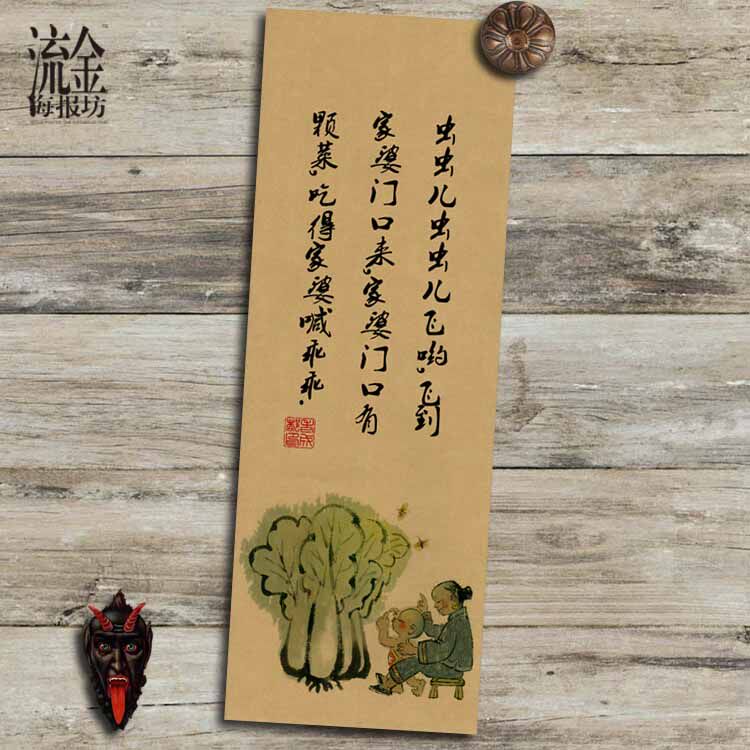 流金
海报坊
虫虫儿虫虫儿飞哟,飞到
家婆门口来,家婆门口有
颗菜,吃得家婆喊乖乖.